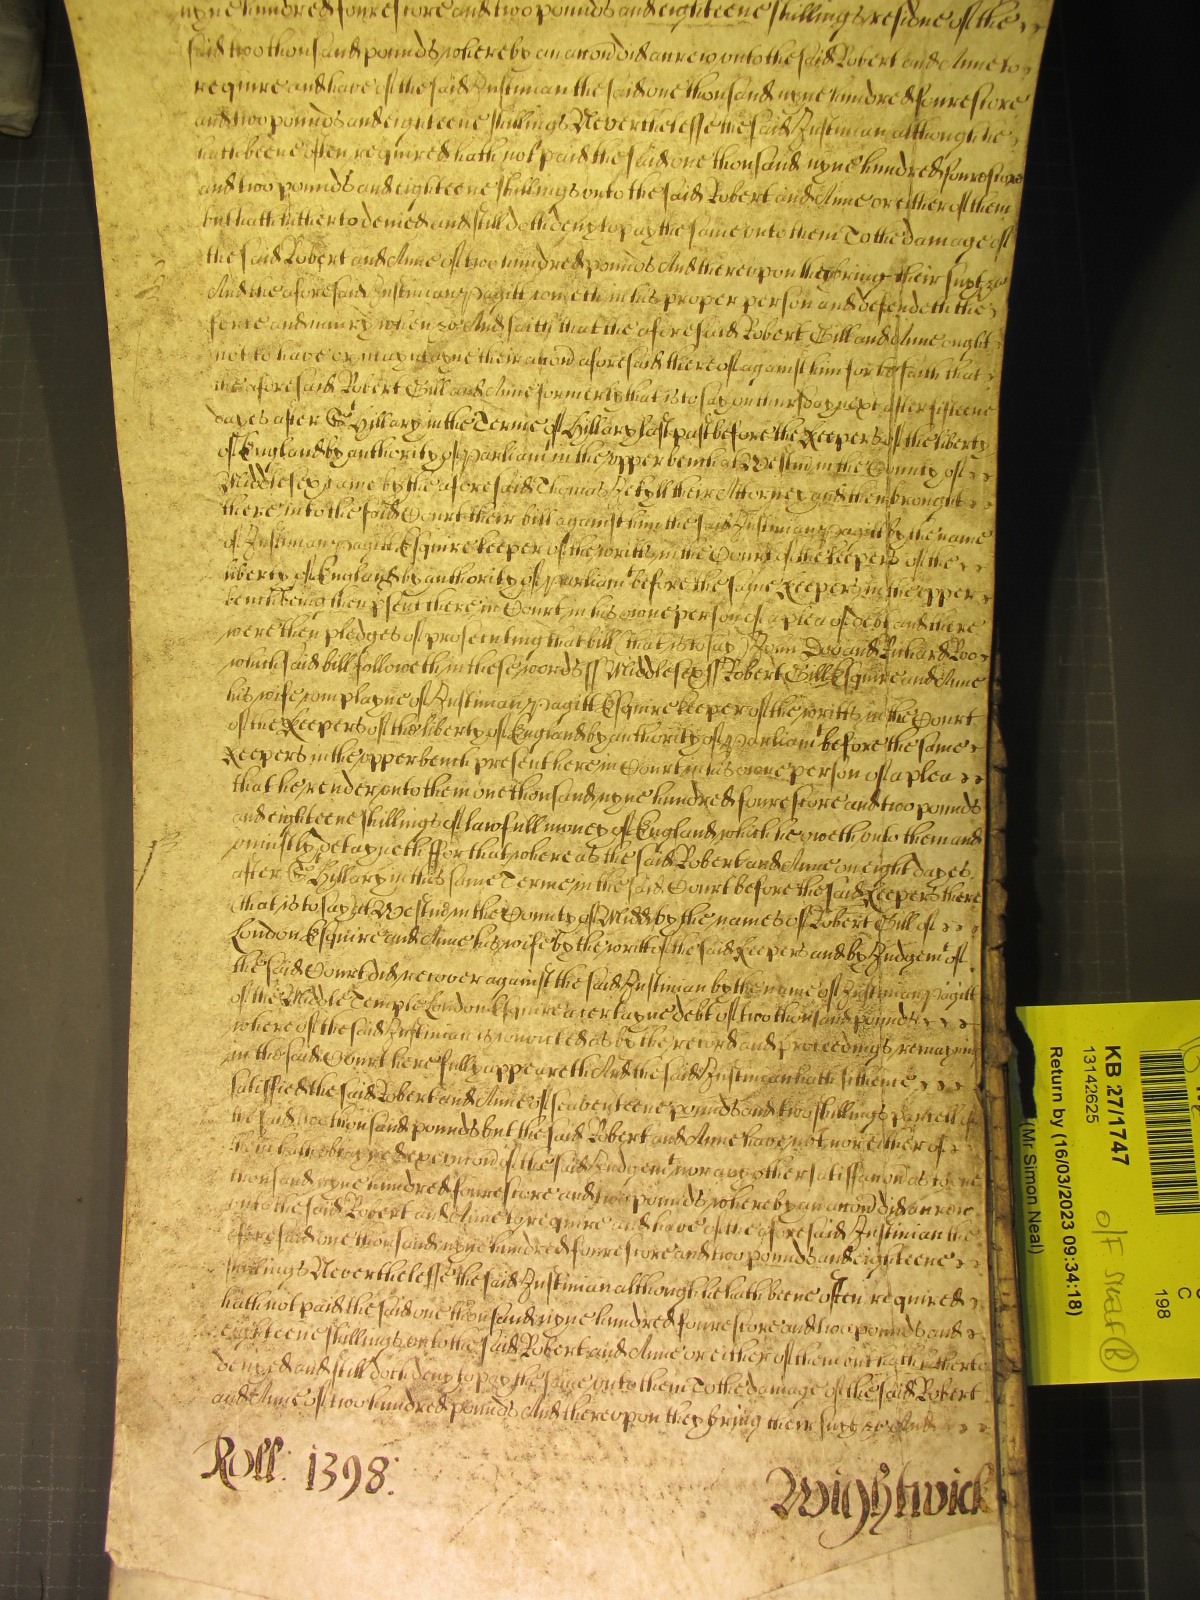 nyne hundred fourescore and two pounds and eighteene shillings residue of the
said two thousand pounds whereby an accon did accrew unto the said Robert and Anne to
require and have of the said Justinian the said one thousand nyne hundred fourescore
and two pounds and eighteene shillings Neverthelesse the said Justinian although he
hath beene often required hath not paid the said one thousand nyne hundred fourescore
and two pounds and eighteene shillings unto the said Robert and Anne or either of them
but hath hitherto denied and still doth deny to pay the same unto them To the damage of
the said Robert and Anne of two hundred pounds And thereupon they bring their suyt &c
And the aforesaid Justinian Pagitt cometh in his proper person and defendeth the
force and iniury when &c And saith that the aforesaid Robert Gill and Anne ought
not to have or mayntayne their accon aforesaid thereof against him for he saith that
the aforesaid Robert Gill and Anne formerly that is to say on thursday next after fifteene
dayes after St Hillary in the Terme of St Hillary last past before the Keepers of the liberty
of England by authority of Parliam in the upper bench at Westm in the County of
Middlesex came by the aforesaid Thomas Jekyll their Attorney and then brought
there into the said Court their bill against him the said Justinian Pagitt by the name
of Justinian Pagitt Esquire keeper of the writts in the Court of the Keepers of the
liberty of England by authority of Parliamt before the same Keepers in the upper
bench being then psent there in Court in his owne person of a plea of debt and there
were then pledges of prosecuting that bill (that is to say) John Doo and Richard Roo
which said bill followeth in these words ss Middlesex ss Robert Gill Esquire and Anne
his wife complayne of Justinian Pagitt Esquire keeper of the writts in the Court
of the Keepers of the liberty of England by authority of Parliamt before the same
Keepers in the upper bench present here in Court in his owne person of a plea
that he render unto them one thousand nyne hundred fourescore and two pounds
and eighteene shillings of lawfull money of England which he oweth unto them and
uniustly detayneth ffor that whereas the said Robert and Anne on eight dayes
after St Hillary in this same Terme in the said Court before the said Keepers there
that is to say at Westm in the County of Midd by the names of Robert Gill of
London Esquire and Anne his wife by the writt of the said Keepers and by Judgemt of
the said Court did recover against the said Justinian by the name of Justinian Pagitt
of the Middle Temple London Esquire a certayne debt of two thousand pounds
whereof the said Justinian is convicted as by the record and proceedings remayning
in the said Court here fully appeareth And the said Justinian hath sithence
satisfied the said Robert and Anne of seaventeene pounds and two shillings parcell of
the said two thousand pounds but the said Robert and Anne have not nor either of
them hath obtayned execucon of the said Judgemt nor any other satisfaccon as to one
thousand nyne hundred fourescore and two pounds whereby an accon did accrew
unto the said Robert and Anne to require and have of the aforesaid Justinian the
aforesaid one thousand nyne hundred fourescore and two pounds and eighteene
shillings Neverthelesse the said Justinian although he hath beene often required
hath not paid the said one thousand nyne hundred fourescore and two pounds and
eighteene shillings unto the said Robert and Anne or either of them but hath hitherto
denyed and still doth deny to pay the same unto them To the damage of the said Robert
and Anne of two hundred pounds And thereupon they bring their suyt &c And
Roll: 1398:
Wightwick
KB 27/1747
13142625
Return by (16/03/2023 09:34:18)
(Mr Simon Neal)
C
198